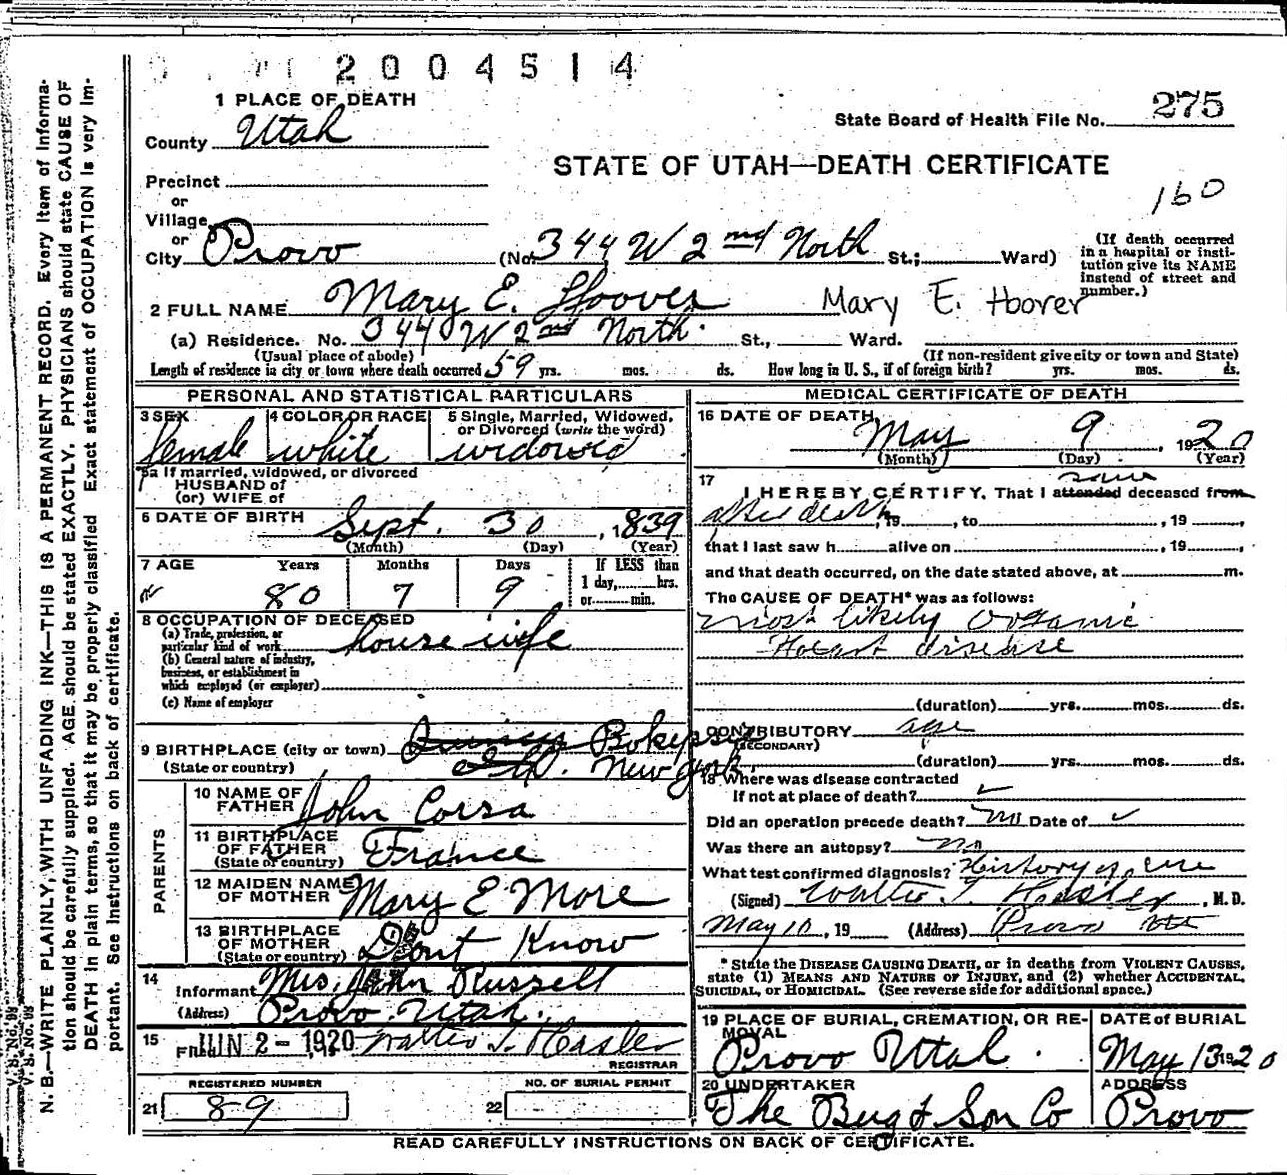 2004514
1 PLACE OF DEATH
County Utah
State Board of Health File No. 275
STATE OF UTAH—DEATH CERTIFICATE
160
Precinct
or
Village
or
City Provo (No. 344 W 2nd North St.; Ward)
(If death occurred in a hospital or insti-
tution give its NAME
instead of street and
number.)
2 FULL NAME Mary E. Hoover Mary E. Hoover
(a) Residence. No. 344 W 2nd North St., Ward.
(Usual place of abode) (If non-resident give city or town and State)
Length of residence in city or town where death occurred 59 yrs. mos. ds. How long in U. S., if of foreign birth? yrs. mos. ds.
PERSONAL AND STATISTICAL PARTICULARS
3 SEX female
4 COLOR OR RACE white
5 Single, Married, Widowed,
or Divorced (write the word)
widowed
5a If married, widowed, or divorced
HUSBAND of
(or) WIFE of
6 DATE OF BIRTH Sept. 30, 1839
(Month) (Day) (Year)
7 AGE Years Months Days If LESS than
1 day, hrs.
or min.
80 7 9
8 OCCUPATION OF DECEASED
(a) Trade, profession, or
particular kind of work housewife
(b) General nature of industry,
business, or establishment in
which employed (or employer)
(c) Name of employer
9 BIRTHPLACE (city or town) Quincy Bokepsie
(State or country) Ill. New York.
PARENTS
10 NAME OF
FATHER John Corsa
11 BIRTHPLACE
OF FATHER
(State or country) France
12 MAIDEN NAME
OF MOTHER Mary E More
13 BIRTHPLACE
OF MOTHER
(State or country) Dont Know
14 Informant Mrs. John Russell
(Address) Provo Utah.
15 Filed JUN 2 - 1920 Walter T. Hasler
REGISTRAR
REGISTERED NUMBER
21 89
NO. OF BURIAL PERMIT
22
MEDICAL CERTIFICATE OF DEATH
16 DATE OF DEATH May 9, 1920
(Month) (Day) (Year)
17 saw
I HEREBY CERTIFY, That I attended deceased from
after death, 19 , to , 19 ,
that I last saw h alive on , 19 ,
and that death occurred, on the date stated above, at m.
The CAUSE OF DEATH* was as follows:
most likely organic
Heart disease
(duration) yrs. mos. ds.
CONTRIBUTORY age
(SECONDARY)
(duration) yrs. mos. ds.
18 Where was disease contracted
If not at place of death?
Did an operation precede death? no Date of
Was there an autopsy? no
What test confirmed diagnosis? History of case
(Signed) Walter T. Hasler, M. D.
May 10, 19 (Address) Provo Ut
* State the DISEASE CAUSING DEATH, or in deaths from VIOLENT CAUSES,
state (1) MEANS AND NATURE OF INJURY, and (2) whether ACCIDENTAL,
SUICIDAL, or HOMICIDAL. (See reverse side for additional space.)
19 PLACE OF BURIAL, CREMATION, OR RE-
MOVAL
Provo Utah.
DATE of BURIAL
May 13 1920
20 UNDERTAKER
The Berg & Son Co
ADDRESS
Provo
READ CAREFULLY INSTRUCTIONS ON BACK OF CERTIFICATE.
N. B.—WRITE PLAINLY, WITH UNFADING INK—THIS IS A PERMANENT RECORD. Every item of informa-
tion should be carefully supplied. AGE should be stated EXACTLY. PHYSICIANS should state CAUSE OF
DEATH in plain terms, so that it may be properly classified. Exact statement of OCCUPATION is very im-
portant. See Instructions on back of certificate.